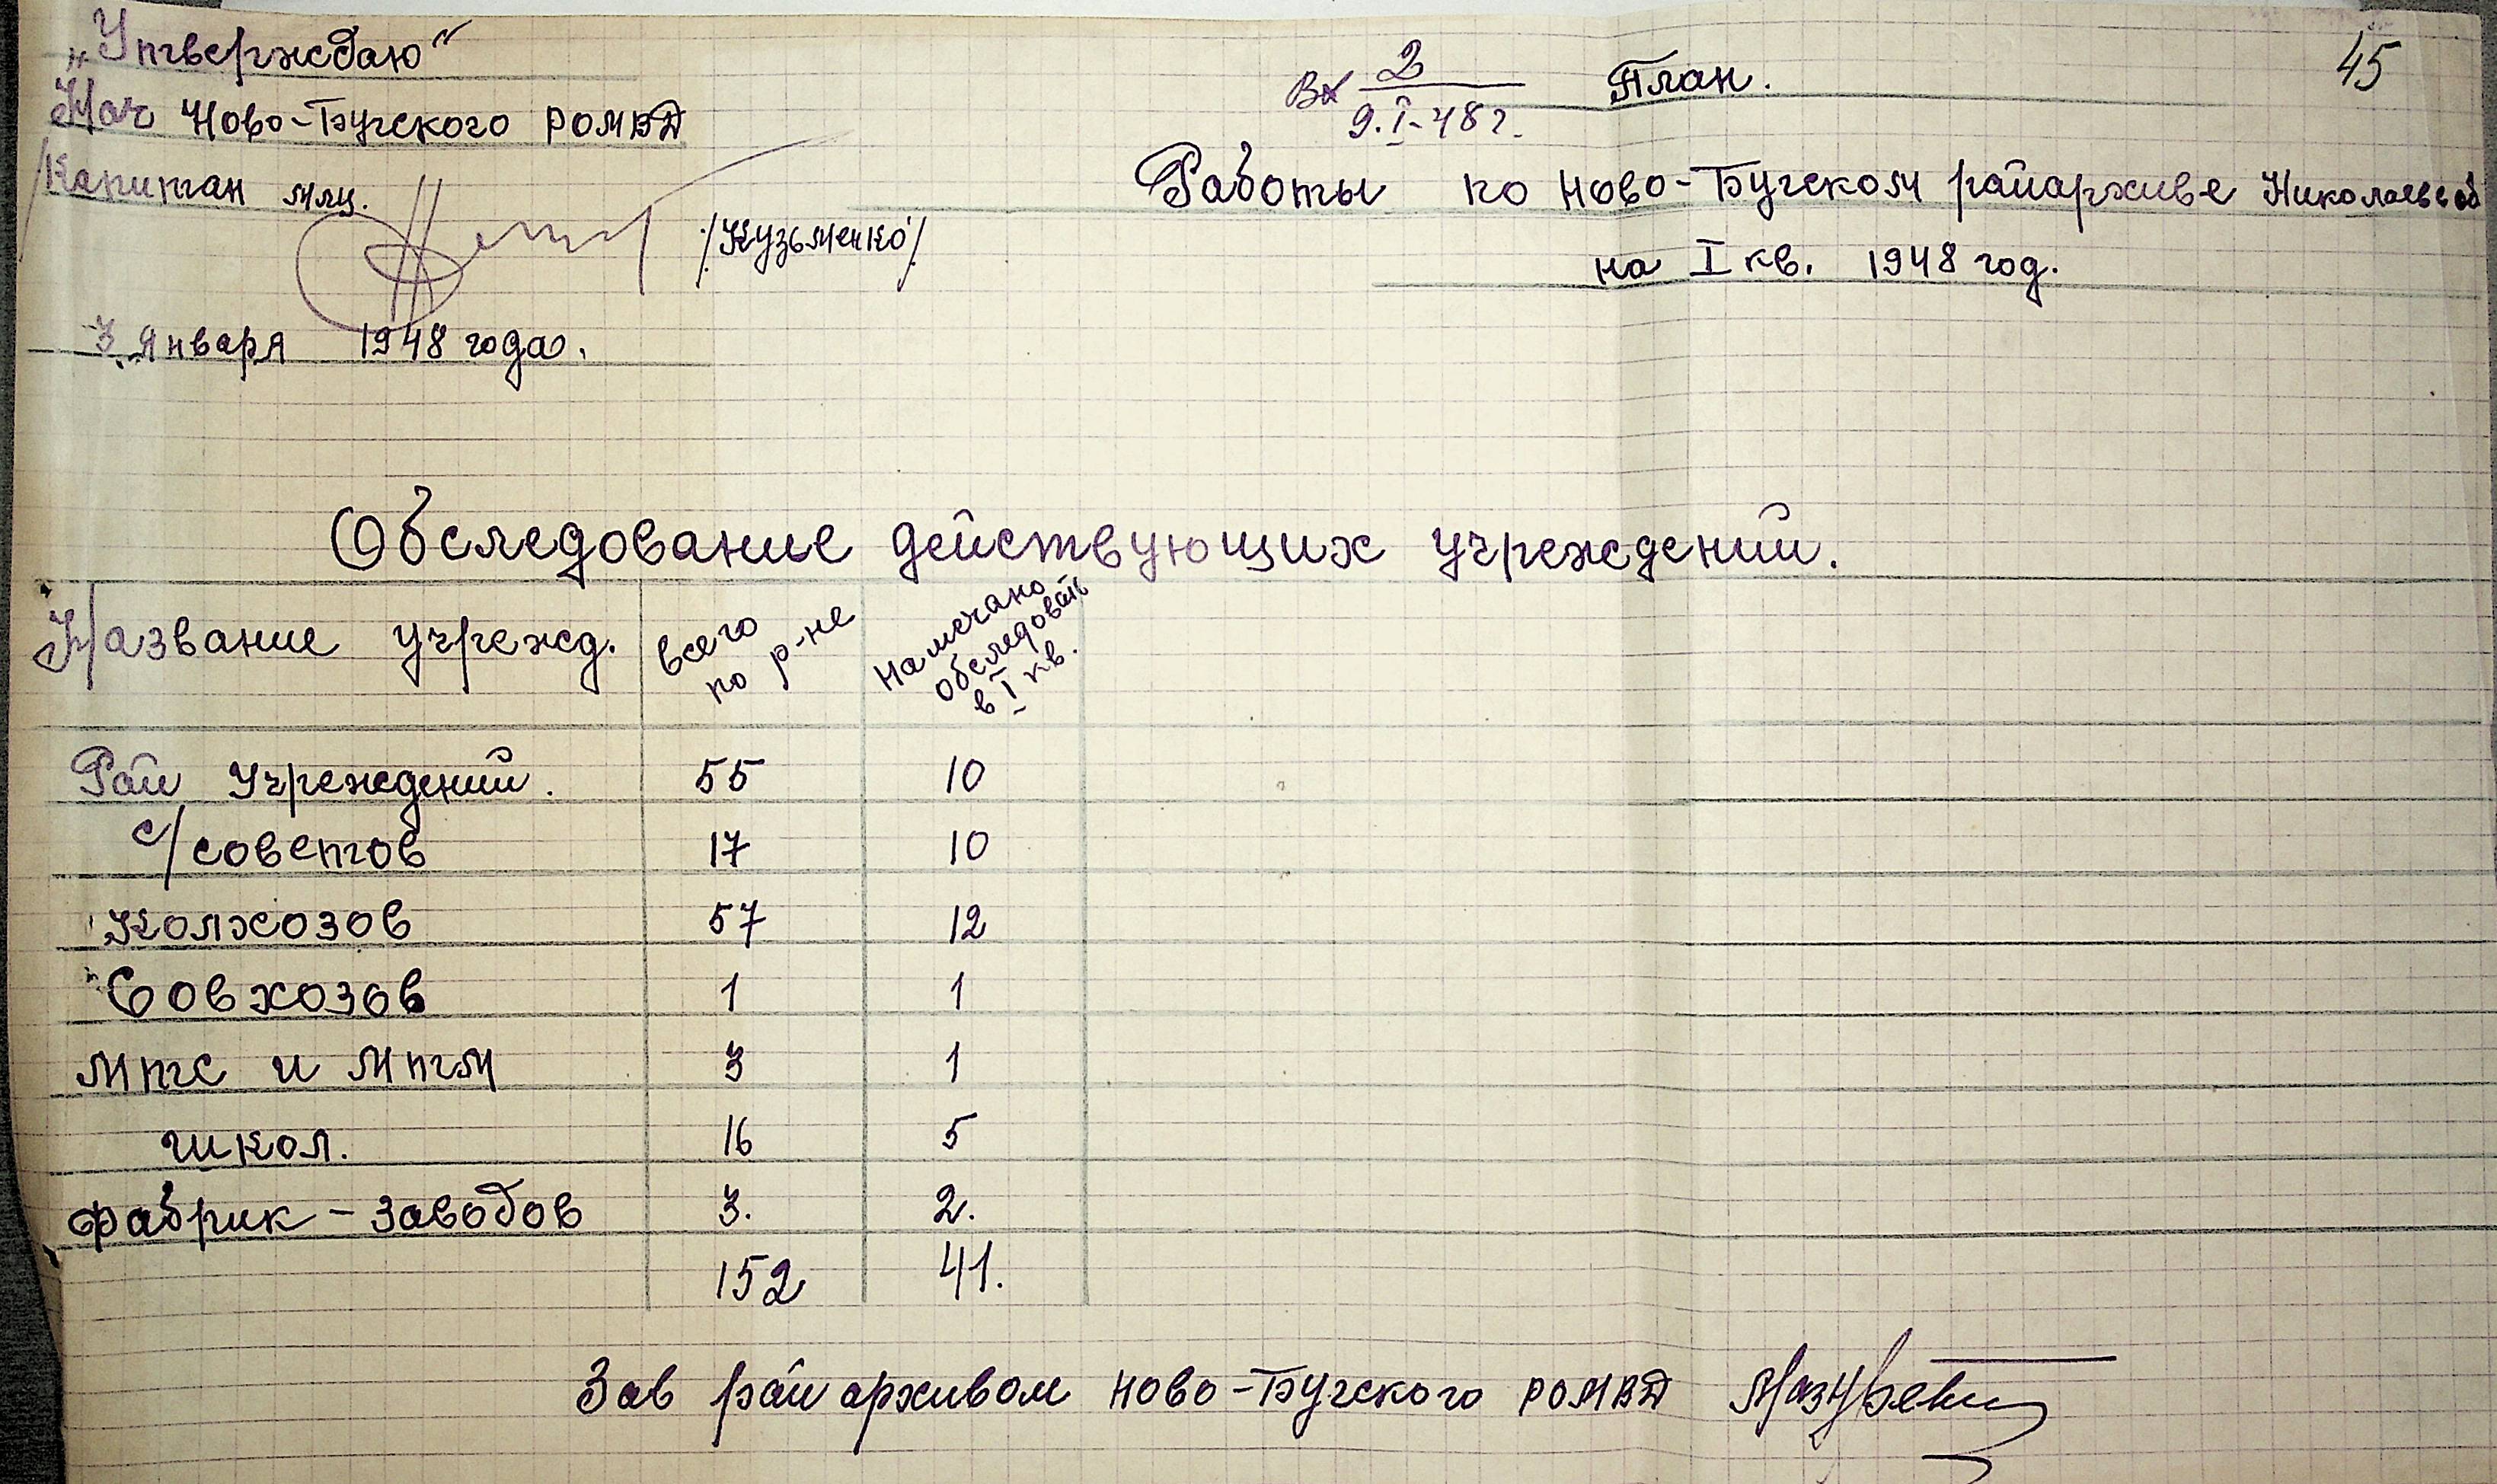 „Утверждаю“
Нач Ново-Бугского РОМВД
Капитан млц.
/Кузьменко/
3 января 1948 года.
45
Вх 2
9.I-48 г.
План.
Работы по Ново-Бугском райархиве Николаевс об
на I кв. 1948 год.
Обследование действующих учреждений.
Название учрежд. всего по р-не Намечано обследовать в I кв.
Рай Учреждений. 55 10
с/советов 17 10
Колхозов 57 12
Совхозов 1 1
Мтс и Мтм 3 1
школ. 16 5
Фабрик - Заводов 3. 2.
152 41.
Зав райархивом Ново-Бугского РОМВД Мазуревич